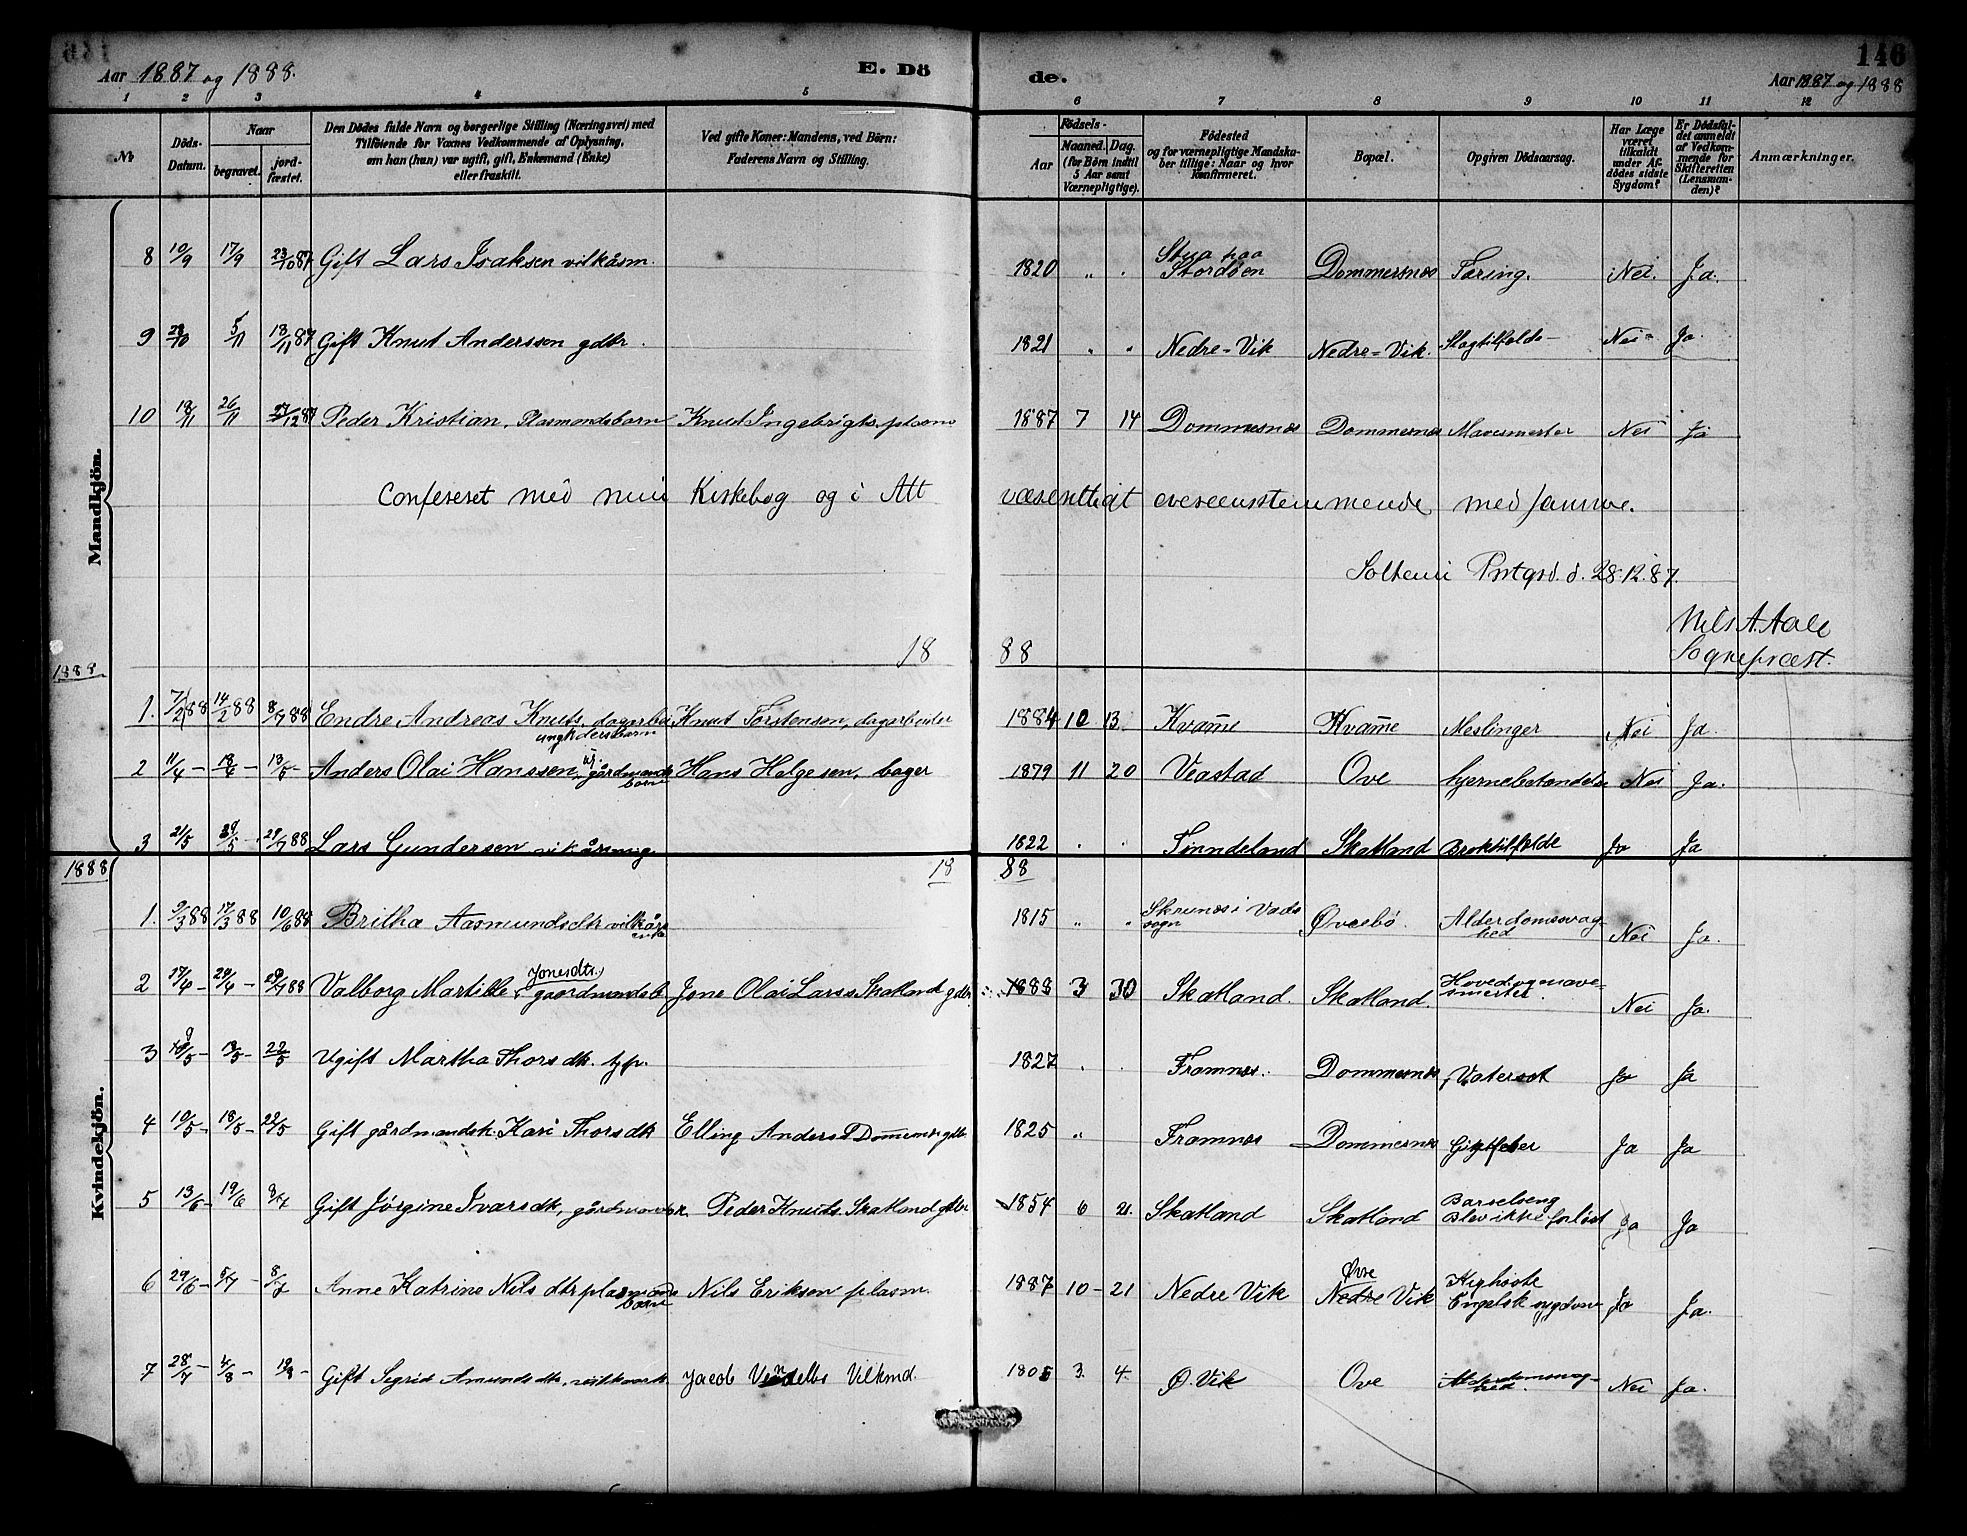 Aar 1887 og 1888. E. Dö de. 146 Aar 1887 og 1888
1 2 3 4 5 6 7 8 9 10 11 12
№ Döds-Datum. Naar begravet. jordfæstet. Den Dödes fulde Navn og borgerlige Stilling (Næringsvei) med Tilföiende for Voxnes Vedkommende af Oplysning, om han (hun) var ugift, gift, Enkemand (Enke) eller fraskilt. Ved gifte Koner: Mandens, ved Börn: Faderens Navn og Stilling. Födsels- Aar Maaned. Dag. (for Börn indtil 5 Aar samt Værnepligtige). Födested og for værnepligtige Mandskaber tillige: Naar og hvor Konfirmeret. Bopæl. Opgiven Dödsaarsag. Har Læge været tilkaldt under Afdödes sidste Sygdom? Er Dödsfaldet anmeldt af Vedkommende for Skifteretten (Lensmanden)? Anmærkninger.
Mandkjön.
8 10/9 17/9 23/10 87 Gift Lars Isaksen vilkåsm. 1820 " " Stua paa Stordöen Dommersnes Tæring. Nei. Ja.
9 28/10 5/11 13/11 87 Gift Knut Anderssen gdbr. 1821 " " Nedre-Vik Nedre-Vik. Slagtilfælde- Nei- Ja.
10 19/11 26/11 27/12 87 Peder Kristian, Plasmandsbarn Knut Ingebrigts. plasm 1887 7 14 Dommesnes Dommernes Mavesmerter Nei Ja
Confereret med min Kirkebog og i Alt væsentligt overeensstemmende med samme.
28.12.87.
Nils A. Aale
Sognepræst.
1888 18 88
1. 7/2 88 14/2 88 8/7 88 Endre Andreas Knuts. dagarbei Knut Torstensen, dagarbeider 1884 10 13 Kvam̅e Kvam̅e Meslinger Nei Ja.
2 11/4 - 18/4 - 13/5 - Anders Olai Hanssen, gårdmands barn Hans Helgesen, bager 1879 11 20 Veastad Ove hjernebetændelse Nei Ja.
3 21/5 29/5 - 29/7 88 Lars Gundersen vikårsmig. 1822 . . Tinndeland Skatland Broktilfælde Ja Ja
1888 18 88
Kvindekjön.
1. 9/3 88 17/3 88 10/6 88 Britha Aasmundsdtr vilkårs enke 1815 " " Skrunes i Vads sogn Øvrebø. Alderdomssvaghed Nei Ja.
2 17/4 - 24/4 - 29/7 88 Valborg Martille Jonesdtr. gaardmandsb Jone Olai Larss. Skatland gdbr 1888 3 30 Skatland. Skatland. Hoved og mavesmerter. Nei Ja.
3 9/5 - 18/5 - 22/5 Ugift Martha Thorsdtr. 1827 . . Framnes. Dommesnes Vatersot Ja Ja
4 10/5 - 18/5 - 22/5 Gift gårdmandsk. Kari Thorsdtr Elling Anders. Dommesnes gdbr. 1825 " Framnes Dommersnes Gigtfeber Ja Ja
5 13/6 - 19/6 8/7 Gift Jørgine Ivarsdtr, gårdmandsk. Peder Knuts. Skatland gdbr 1854 6 21. Skatland Skatland Barselseng Blev ikke forløst Ja Ja
6 29/6 - 5/7 - 8/7 Anne Katrine Nilsdtr plasmands barn Nils Eriksen plasm. 1887 10 - 21 Nedre Vik Øvre Vik Kighoste Engelsk sygdom Ja Ja.
7 28/7 - 4/8 - 19/8 - Gift Sigrid Amundsdtr. Jacob Vilkmd. 1805 3. 4. Ø. Vik Ove Alderdomssvaghed. Nei Ja.